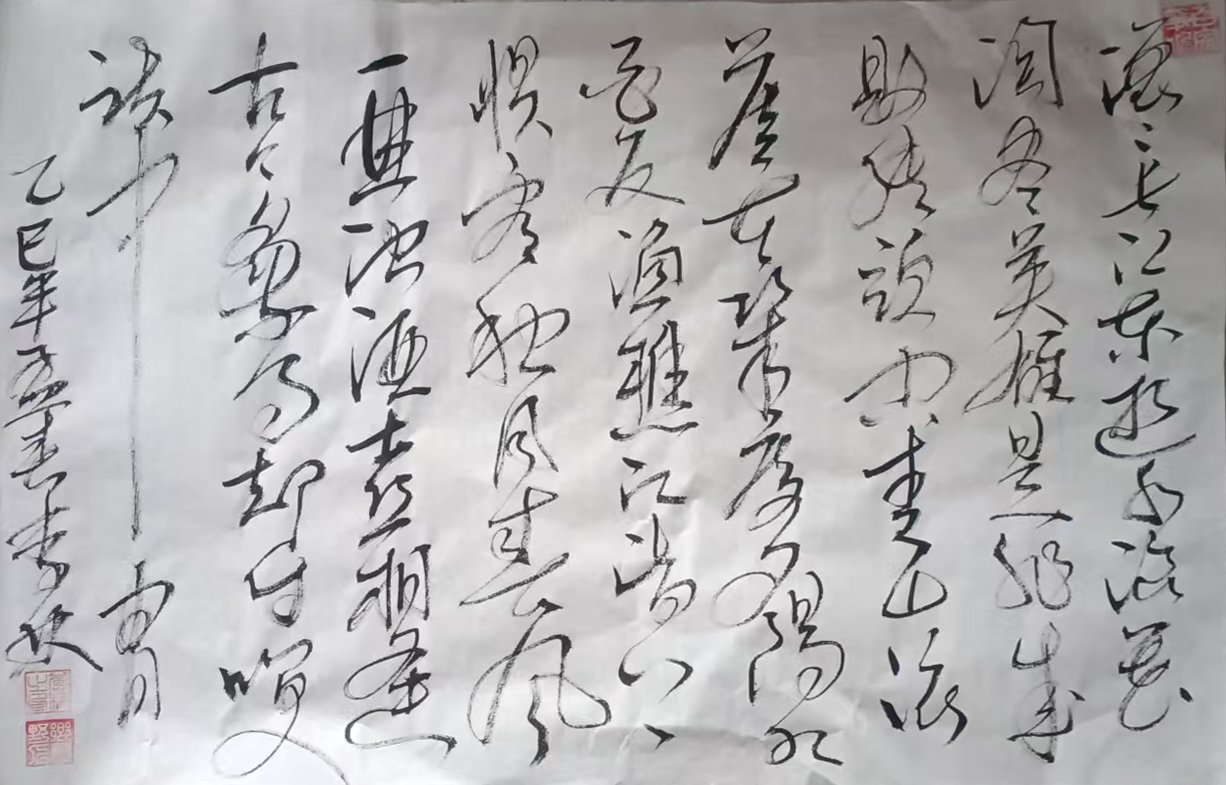 滚滚长江东逝水浪花
淘尽英雄是非成
败转头空青山依
旧在几度夕阳红
白发渔樵江渚上
惯看秋月春风
一壶浊酒喜相逢
古今多少事都付笑
谈中
乙巳年孟春李